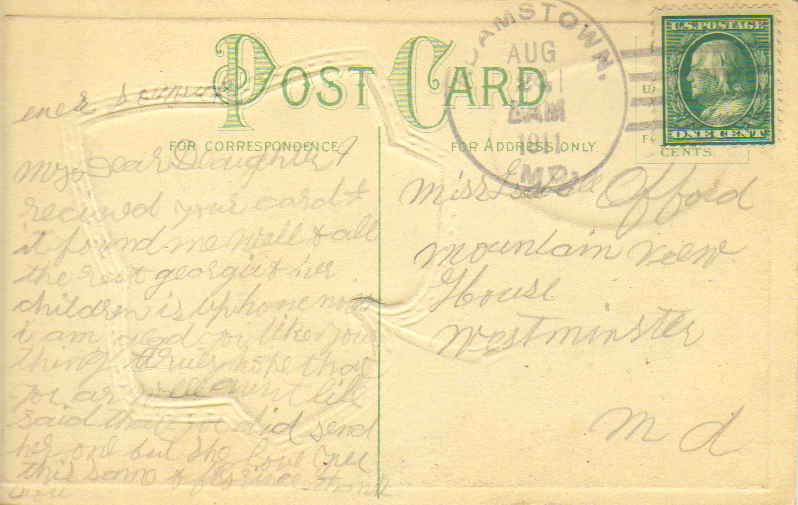 POST CARD
FOR CORRESPONDENCE
FOR ADDRESS ONLY
DAMSTOWN.
AUG
AM
1911
MD.
U.S. POSTAGE
ONE CENT
CENTS.
My Dear Daughter I
recived your card &
it found me well & all
the rest georgia & her
children is up home now
i am glad you like your
thing truly hope that
you ar well aunt lill
said that you did send
her one but she love you
this same &
Miss Offord
mountain view
House
Westminster
Md